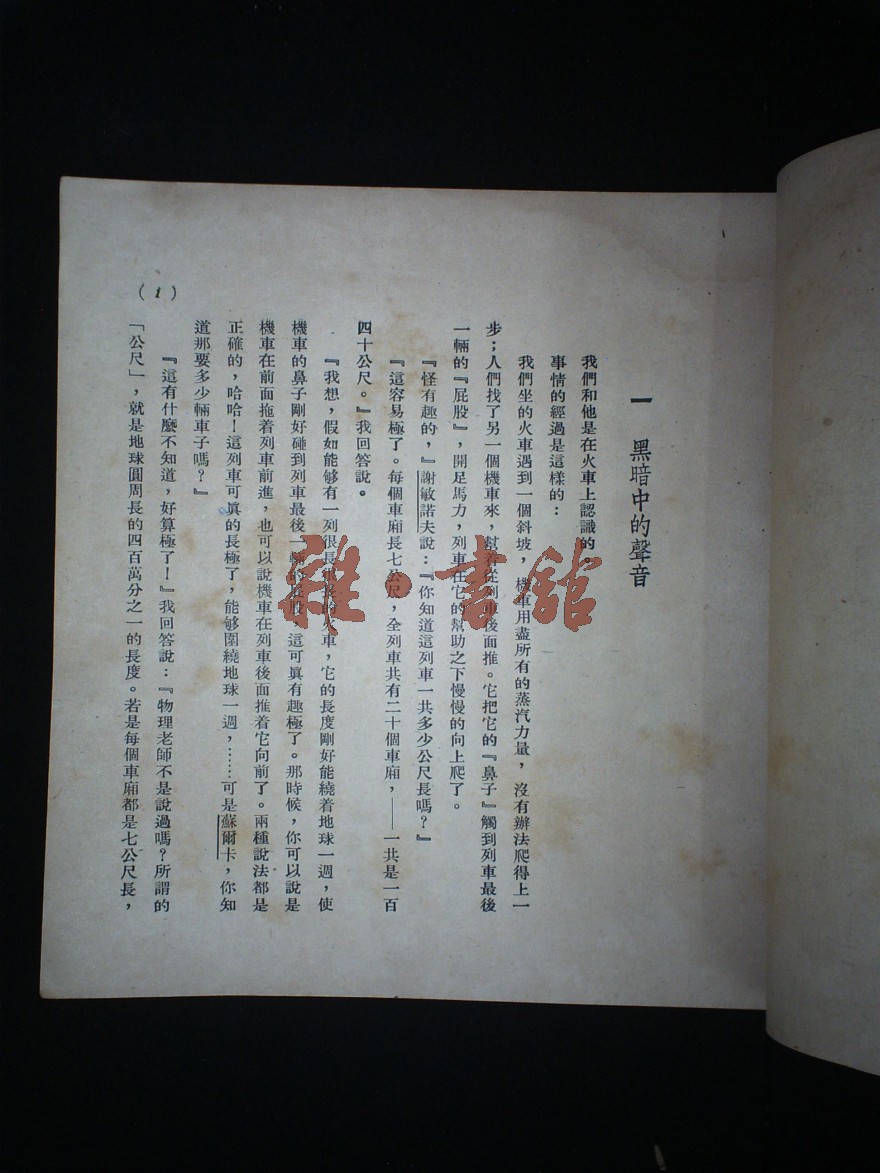 一　黑暗中的聲音
我們和他是在火車上認識的
事情的經過是這樣的：
我們坐的火車遇到一個斜坡，機車用盡所有的蒸汽力量，沒有辦法爬得上一
步；人們找了另一個機車來，幫着從列車後面推。它把它的『鼻子』觸到列車最後
一輛的『屁股』，開足馬力，列車在它的幫助之下慢慢的向上爬了。
『怪有趣的，』謝敏諾夫說：『你知道這列車一共多少公尺長嗎？』
『這容易極了。每個車廂長七公尺，全列車共有二十個車廂，——一共是一百
四十公尺。』我回答說。
『我想，假如能够有一列很長很長的火車，它的長度剛好能繞着地球一週，使
機車的鼻子剛好碰到列車最後一輛的屁股，這可眞有趣極了。那時候，你可以說是
機車在前面拖着列車前進，也可以說機車在列車後面推着它向前了。兩種說法都是
正確的，哈哈！這列車可眞的長極了，能够圍繞地球一週，……可是蘇爾卡，你知
道那要多少輛車子嗎？』
『這有什麼不知道，好算極了！』我回答說：『物理老師不是說過嗎？所謂的
「公尺」，就是地球圓周長的四百萬分之一的長度。若是每個車廂都是七公尺長，
(1)
雜·書館